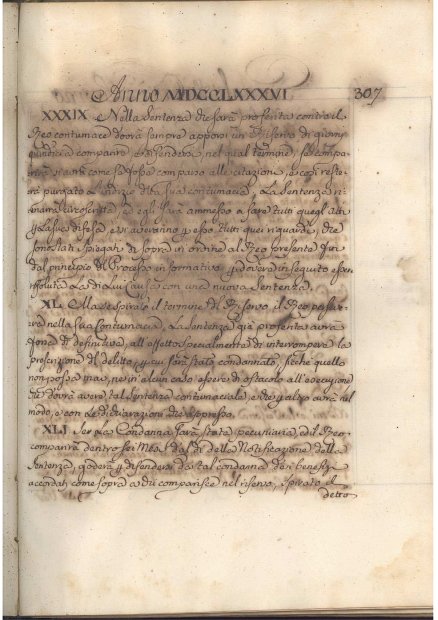 Anno MDCCLXXXVI 307
XXXIX Nella Sentenza che sarà proferita contro il
Reo contumace dovrà sempre apporvi un Riservo di giorni
a comparire, e difendersi, nel qual termine, se compa-
rirà, si avrà come se fosse comparso alle citazioni, e così reste-
rà purgato l'indizio della sua contumacia, e la Sentenza ri-
marrà circoscritta, ed egli sarà ammesso a fare tutti quegli atti
difesa, e si averanno p. esso tutti quei riguardi, che
sono stati spiegati di sopra in ordine al Reo presente fin
dal principio del Processo informativo, e dovrà in seguito esser
risoluta la di lui Causa con una nuova Sentenza.
XL. Ma se spirato il termine del Riservo il Reo persiste-
rà nella sua Contumacia, La Sentenza già proferita avrà
forza di definitiva, all'effetto specialmente di interrompere la
prescrizione del delitto, p. cui sarà stato condannato, sicchè quella
non possa mai, nè in alcun caso essere di ostacolo all'esecuzione
che dovrà avere tal Sentenza contumaciale, e che p. altro avrà nel
modo, e con le dichiarazioni che appresso.
XLI Se la Condanna sarà stata pecuniaria, ed il Reo
comparirà dentro sei Mesi dal dì della Notificazione della
Sentenza, goderà p. difendersi da tal condanna dei benefizj
accordati come sopra a chi comparisce nel riservo, spirato il
detto